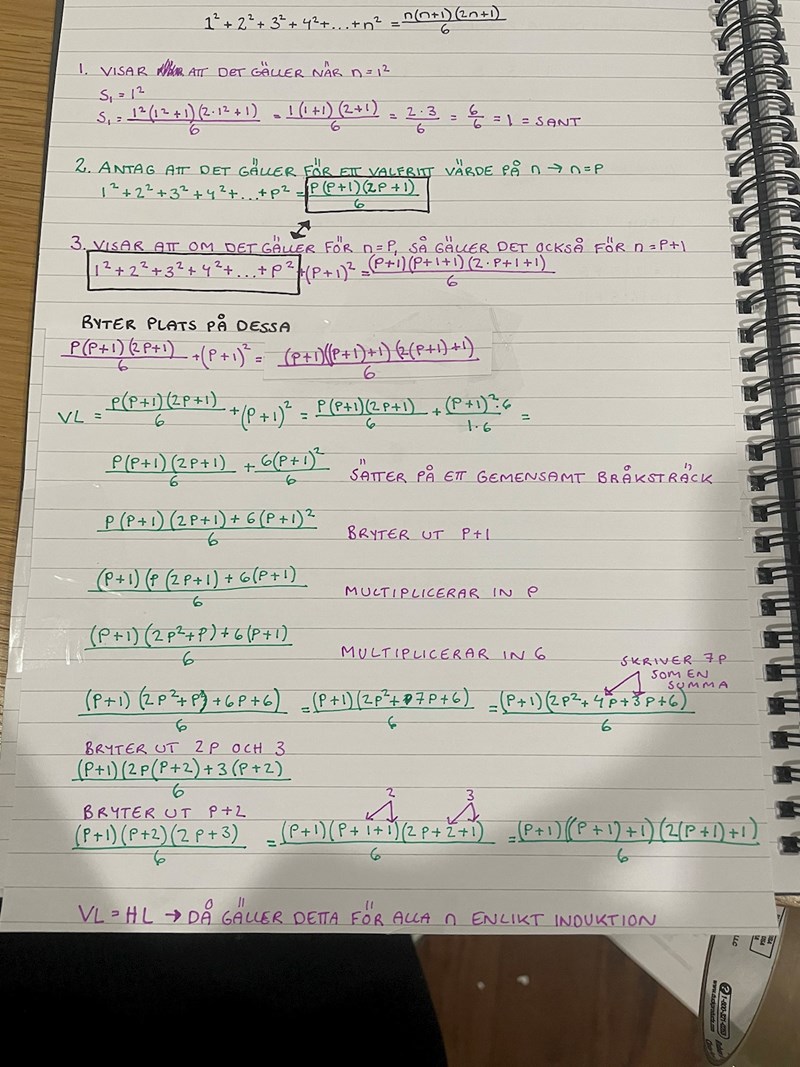 1² + 2² + 3² + 4² + ... + n² = n(n+1)(2n+1)/6
1. VISAR ATT DET GÄLLER NÄR n = 1²
S₁ = 1²
S₁ = 1²(1²+1)(2·1²+1)/6 = 1(1+1)(2+1)/6 = 2·3/6 = 6/6 = 1 = SANT
2. ANTAG ATT DET GÄLLER FÖR ETT VALFRITT VÄRDE PÅ n → n=P
1² + 2² + 3² + 4² + ... + P² = P(P+1)(2P+1)/6
3. VISAR ATT OM DET GÄLLER FÖR n=P, SÅ GÄLLER DET OCKSÅ FÖR n=P+1
1² + 2² + 3² + 4² + ... + P² + (P+1)² = (P+1)(P+1+1)(2·P+1+1)/6
BYTER PLATS PÅ DESSA
P(P+1)(2P+1)/6 + (P+1)² = (P+1)((P+1)+1)(2(P+1)+1)/6
VL = P(P+1)(2P+1)/6 + (P+1)² = P(P+1)(2P+1)/6 + (P+1)²·6/1·6 =
P(P+1)(2P+1)/6 + 6(P+1)²/6 SÄTTER PÅ ETT GEMENSAMT BRÅKSTRÄCK
P(P+1)(2P+1) + 6(P+1)²/6 BRYTER UT P+1
(P+1)(P(2P+1) + 6(P+1)/6 MULTIPLICERAR IN P
(P+1)(2P²+P) + 6(P+1)/6 MULTIPLICERAR IN 6
SKRIVER 7P
SOM EN
SUMMA
(P+1)(2P²+P)+6P+6)/6 = (P+1)(2P²+7P+6)/6 = (P+1)(2P²+4P+3P+6)/6
BRYTER UT 2P OCH 3
(P+1)(2P(P+2)+3(P+2)/6
BRYTER UT P+2
2 3
(P+1)(P+2)(2P+3)/6 = (P+1)(P+1+1)(2P+2+1)/6 = (P+1)((P+1)+1)(2(P+1)+1)/6
VL = HL → DÅ GÄLLER DETTA FÖR ALLA n ENLIKT INDUKTION